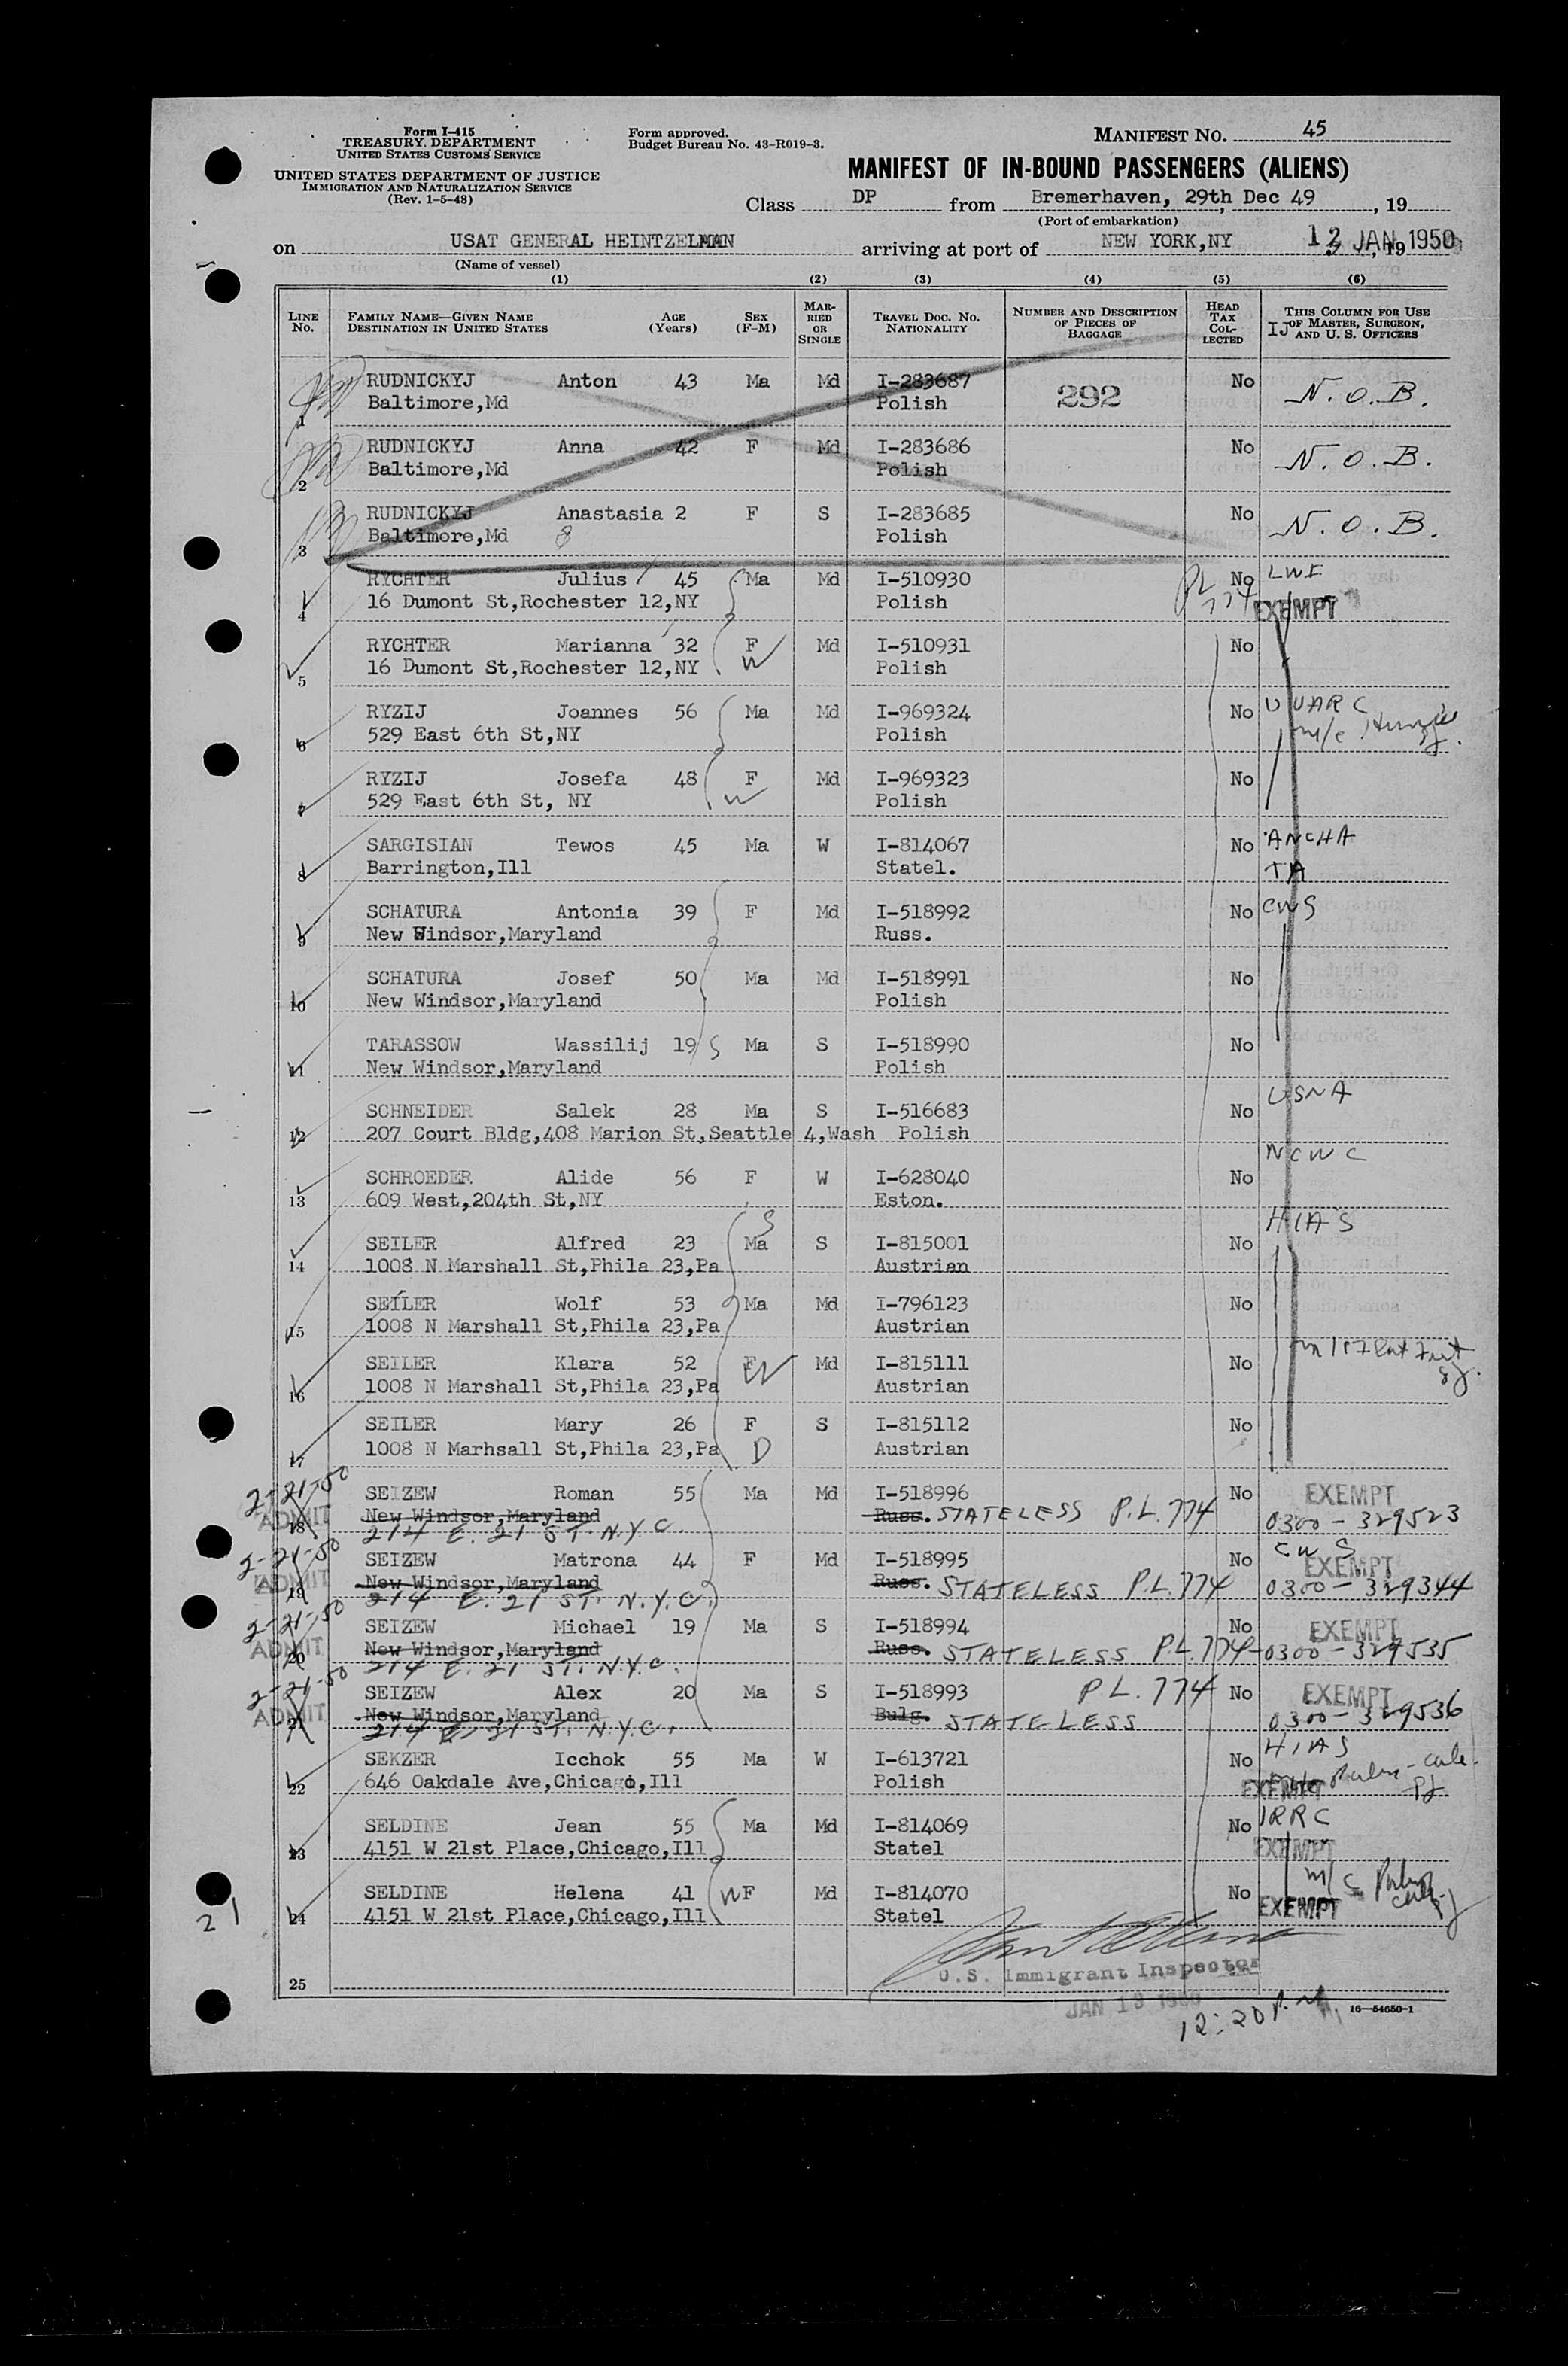 Form I-415
TREASURY DEPARTMENT
UNITED STATES CUSTOMS SERVICE
UNITED STATES DEPARTMENT OF JUSTICE
IMMIGRATION AND NATURALIZATION SERVICE
(Rev. 1-5-48)
Form approved.
Budget Bureau No. 43-R019-3.
MANIFEST NO. 45
MANIFEST OF IN-BOUND PASSENGERS (ALIENS)
Class DP from Bremerhaven, 29th Dec 49, 19
(Port of embarkation)
on USAT GENERAL HEINTZELMAN arriving at port of NEW YORK,NY 12 JAN 1950, 19
(Name of vessel)
(1) (2) (3) (4) (5) (6)
LINE NO. FAMILY NAME—GIVEN NAME DESTINATION IN UNITED STATES AGE (Years) SEX (F-M) MARRIED OR SINGLE TRAVEL DOC. NO. NATIONALITY NUMBER AND DESCRIPTION OF PIECES OF BAGGAGE HEAD TAX COLLECTED THIS COLUMN FOR USE OF MASTER, SURGEON, AND U. S. OFFICERS
IJ
1 RUDNICKYJ Anton 43 Ma Md I-283687 292 No N.O.B.
Baltimore,Md Polish
2 RUDNICKYJ Anna 42 F Md I-283686 No N.O.B.
Baltimore,Md Polish
3 RUDNICKYJ Anastasia 2 F S I-283685 No N.O.B.
Baltimore,Md 8 Polish
4 RYCHTER Julius 45 Ma Md I-510930 PL 774 No LWF
16 Dumont St,Rochester 12,NY Polish EXEMPT
5 RYCHTER Marianna 32 F Md I-510931 No
16 Dumont St,Rochester 12,NY W Polish
6 RYZIJ Joannes 56 Ma Md I-969324 No UUARC
529 East 6th St,NY Polish
7 RYZIJ Josefa 48 F Md I-969323 No
529 East 6th St, NY W Polish
8 SARGISIAN Tewos 45 Ma W I-814067 No ANCHA
Barrington,Ill Statel. TA
9 SCHATURA Antonia 39 F Md I-518992 No CWS
New Windsor,Maryland Russ.
10 SCHATURA Josef 50 Ma Md I-518991 No
New Windsor,Maryland Polish
11 TARASSOW Wassilij 19 S Ma S I-518990 No
New Windsor,Maryland Polish
12 SCHNEIDER Salek 28 Ma S I-516683 No USNA
207 Court Bldg,408 Marion St,Seattle 4,Wash Polish
13 SCHROEDER Alide 56 F W I-628040 No NCWC
609 West,204th St,NY Eston.
14 SEILER Alfred 23 S Ma S I-815001 No HIAS
1008 N Marshall St,Phila 23,Pa Austrian
15 SEILER Wolf 53 Ma Md I-796123 No
1008 N Marshall St,Phila 23,Pa Austrian
16 SEILER Klara 52 F Md I-815111 No
1008 N Marshall St,Phila 23,Pa W Austrian
17 SEILER Mary 26 F S I-815112 No
1008 N Marhsall St,Phila 23,Pa D Austrian
2-21-50 ADMIT
18 SEIZEW Roman 55 Ma Md I-518996 No EXEMPT
New Windsor,Maryland Russ. STATELESS P.L. 774 0300-329523
214 E. 21 ST. N.Y.C.
2-21-50 ADMIT
19 SEIZEW Matrona 44 F Md I-518995 No CWS EXEMPT
New Windsor,Maryland Russ. STATELESS P.L. 774 0300-329344
214 E. 21 ST. N.Y.C.
2-21-50 ADMIT
20 SEIZEW Michael 19 Ma S I-518994 No EXEMPT
New Windsor,Maryland Russ. STATELESS P.L. 774 0300-329535
214 E. 21 ST. N.Y.C.
2-21-50 ADMIT
21 SEIZEW Alex 20 Ma S I-518993 P.L. 774 No EXEMPT
New Windsor,Maryland Bulg. STATELESS 0300-329536
214 E. 21 ST. N.Y.C.
22 SEKZER Icchok 55 Ma W I-613721 No HIAS
646 Oakdale Ave,Chicago,Ill Polish EXEMPT
23 SELDINE Jean 55 Ma Md I-814069 No IRRC
4151 W 21st Place,Chicago,Ill Statel EXEMPT
24 SELDINE Helena 41 W F Md I-814070 No
4151 W 21st Place,Chicago,Ill Statel EXEMPT
21
25
U.S. Immigrant Inspector
JAN 13 1950
12:20 P.M.
16—54650-1